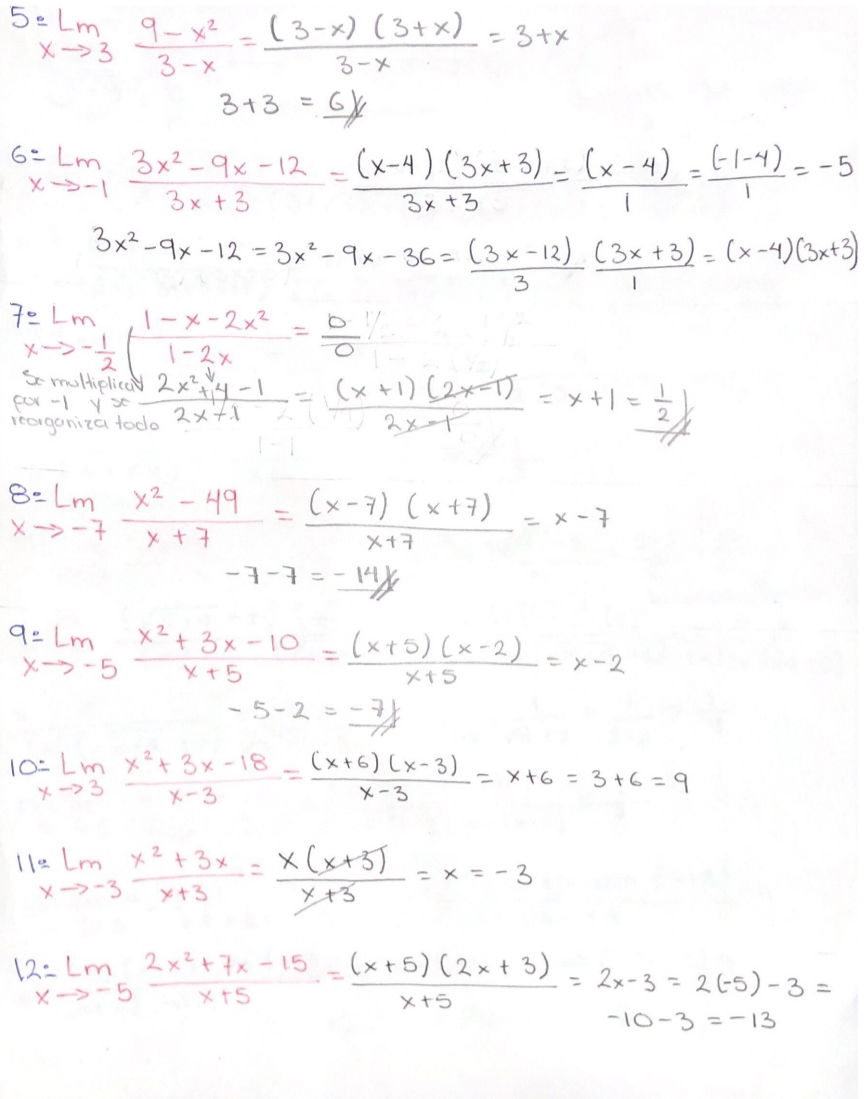 5= Lim x→3 (9 - x²)/(3 - x) = ((3-x) (3+x))/(3-x) = 3+x
3+3 = 6
6= Lim x→-1 (3x² - 9x - 12)/(3x + 3) = ((x-4) (3x+3))/(3x+3) = (x-4)/1 = (-1-4)/1 = -5
3x² - 9x - 12 = 3x² - 9x - 36 = (3x-12)/3 (3x+3)/1 = (x-4)(3x+3)
7= Lim x→-1/2 (1 - x - 2x²)/(1 - 2x) = 0/0
Se multiplica por -1 y se reorganiza todo (2x² + x - 1)/(2x - 1) = ((x+1) (2x-1))/(2x-1) = x+1 = 1/2
8= Lim x→-7 (x² - 49)/(x + 7) = ((x-7) (x+7))/(x+7) = x-7
-7-7 = -14
9= Lim x→-5 (x² + 3x - 10)/(x+5) = ((x+5) (x-2))/(x+5) = x-2
-5-2 = -7
10= Lim x→3 (x² + 3x - 18)/(x-3) = ((x+6) (x-3))/(x-3) = x+6 = 3+6 = 9
11= Lim x→-3 (x² + 3x)/(x+3) = (x (x+3))/(x+3) = x = -3
12= Lim x→-5 (2x² + 7x - 15)/(x+5) = ((x+5) (2x+3))/(x+5) = 2x-3 = 2(-5) - 3 =
-10-3 = -13